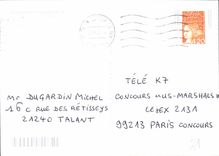 Mr DUGARDIN MICHEL
16 C RUE DES RÉTISSEYS
21240 TALANT
TÉLÉ K7
CONCOURS "LUS-MARSHALS"
CEDEX 2131
99213 PARIS CONCOURS